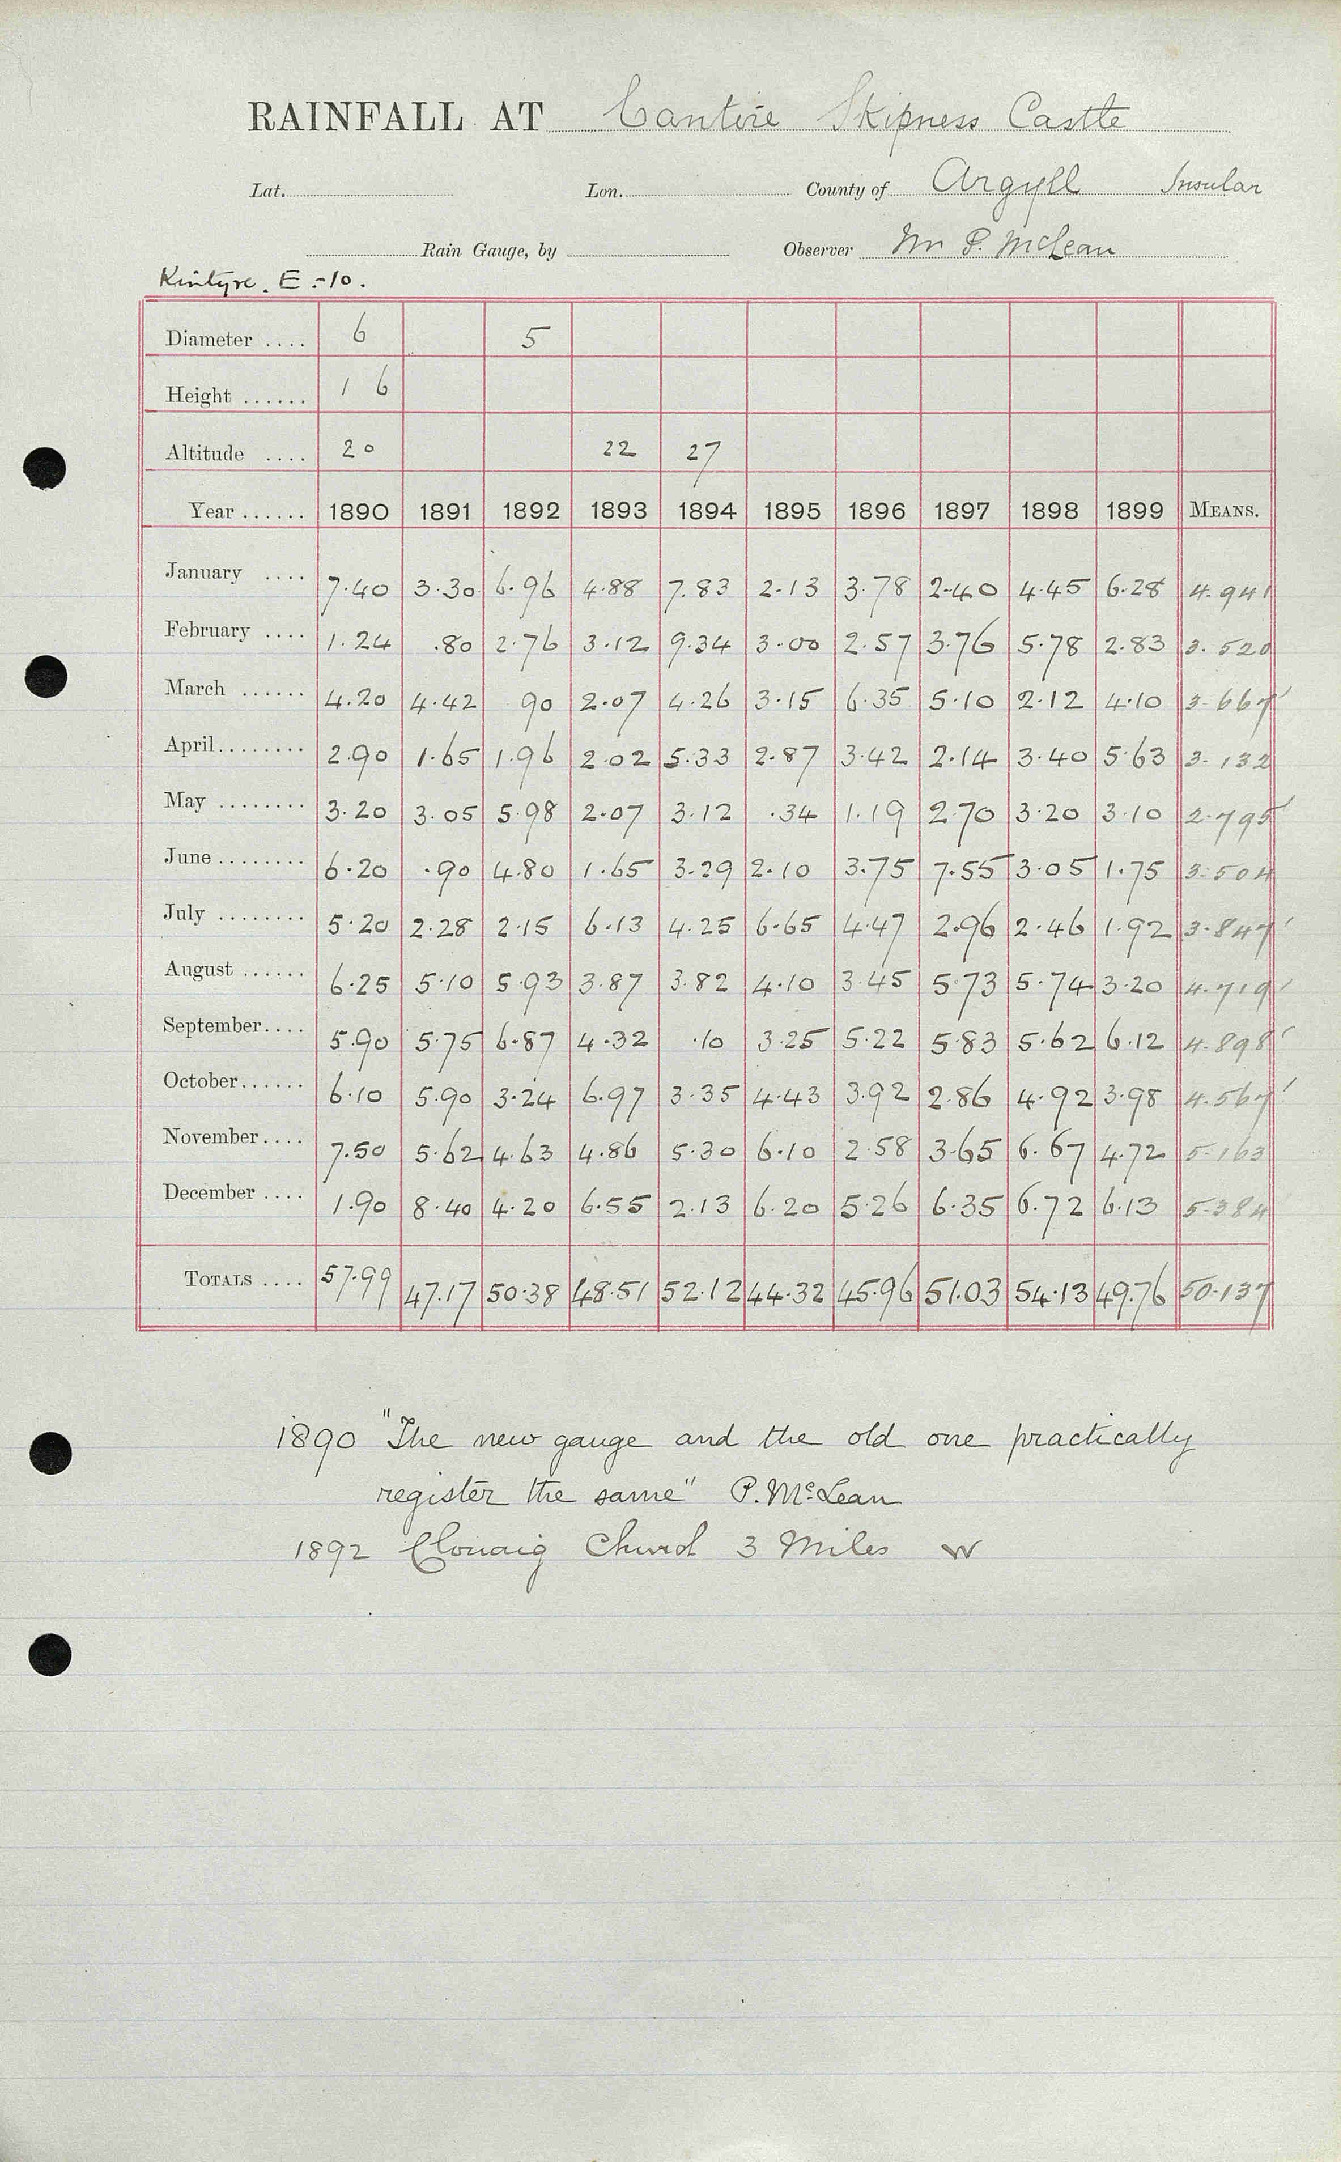 RAINFALL AT Cantire Skipness Castle
Lat. Lon. County of Argyll Insular
Rain Gauge, by Observer Mr P. McLean
Kintyre. E.-10.
Diameter .... 6 5
Height ...... 1 6
Altitude .... 20 22 27
Year ...... 1890 1891 1892 1893 1894 1895 1896 1897 1898 1899 MEANS.
January .... 7.40 3.30 6.96 4.88 7.83 2.13 3.78 2.40 4.45 6.28 4.941
February .... 1.24 .80 2.76 3.12 9.34 3.00 2.57 3.76 5.78 2.83 3.520
March ...... 4.20 4.42 90 2.07 4.26 3.15 6.35 5.10 2.12 4.10 3.667
April........ 2.90 1.65 1.96 2.02 5.33 2.87 3.42 2.14 3.40 5.63 3.132
May ........ 3.20 3.05 5.98 2.07 3.12 .34 1.19 2.70 3.20 3.10 2.795
June........ 6.20 .90 4.80 1.65 3.29 2.10 3.75 7.55 3.05 1.75 3.504
July ........ 5.20 2.28 2.15 6.13 4.25 6.65 4.47 2.96 2.46 1.92 3.847
August ...... 6.25 5.10 5.93 3.87 3.82 4.10 3.45 5.73 5.74 3.20 4.719
September.... 5.90 5.75 6.87 4.32 .10 3.25 5.22 5.83 5.62 6.12 4.898
October...... 6.10 5.90 3.24 6.97 3.35 4.43 3.92 2.86 4.92 3.98 4.567
November.... 7.50 5.62 4.63 4.86 5.30 6.10 2.58 3.65 6.67 4.72 5.163
December .... 1.90 8.40 4.20 6.55 2.13 6.20 5.26 6.35 6.72 6.13 5.384
TOTALS .... 57.99 47.17 50.38 48.51 52.12 44.32 45.96 51.03 54.13 49.76 50.137
1890 "The new gauge and the old one practically
register the same" P. McLean
1892 Clonaig Church 3 Miles W